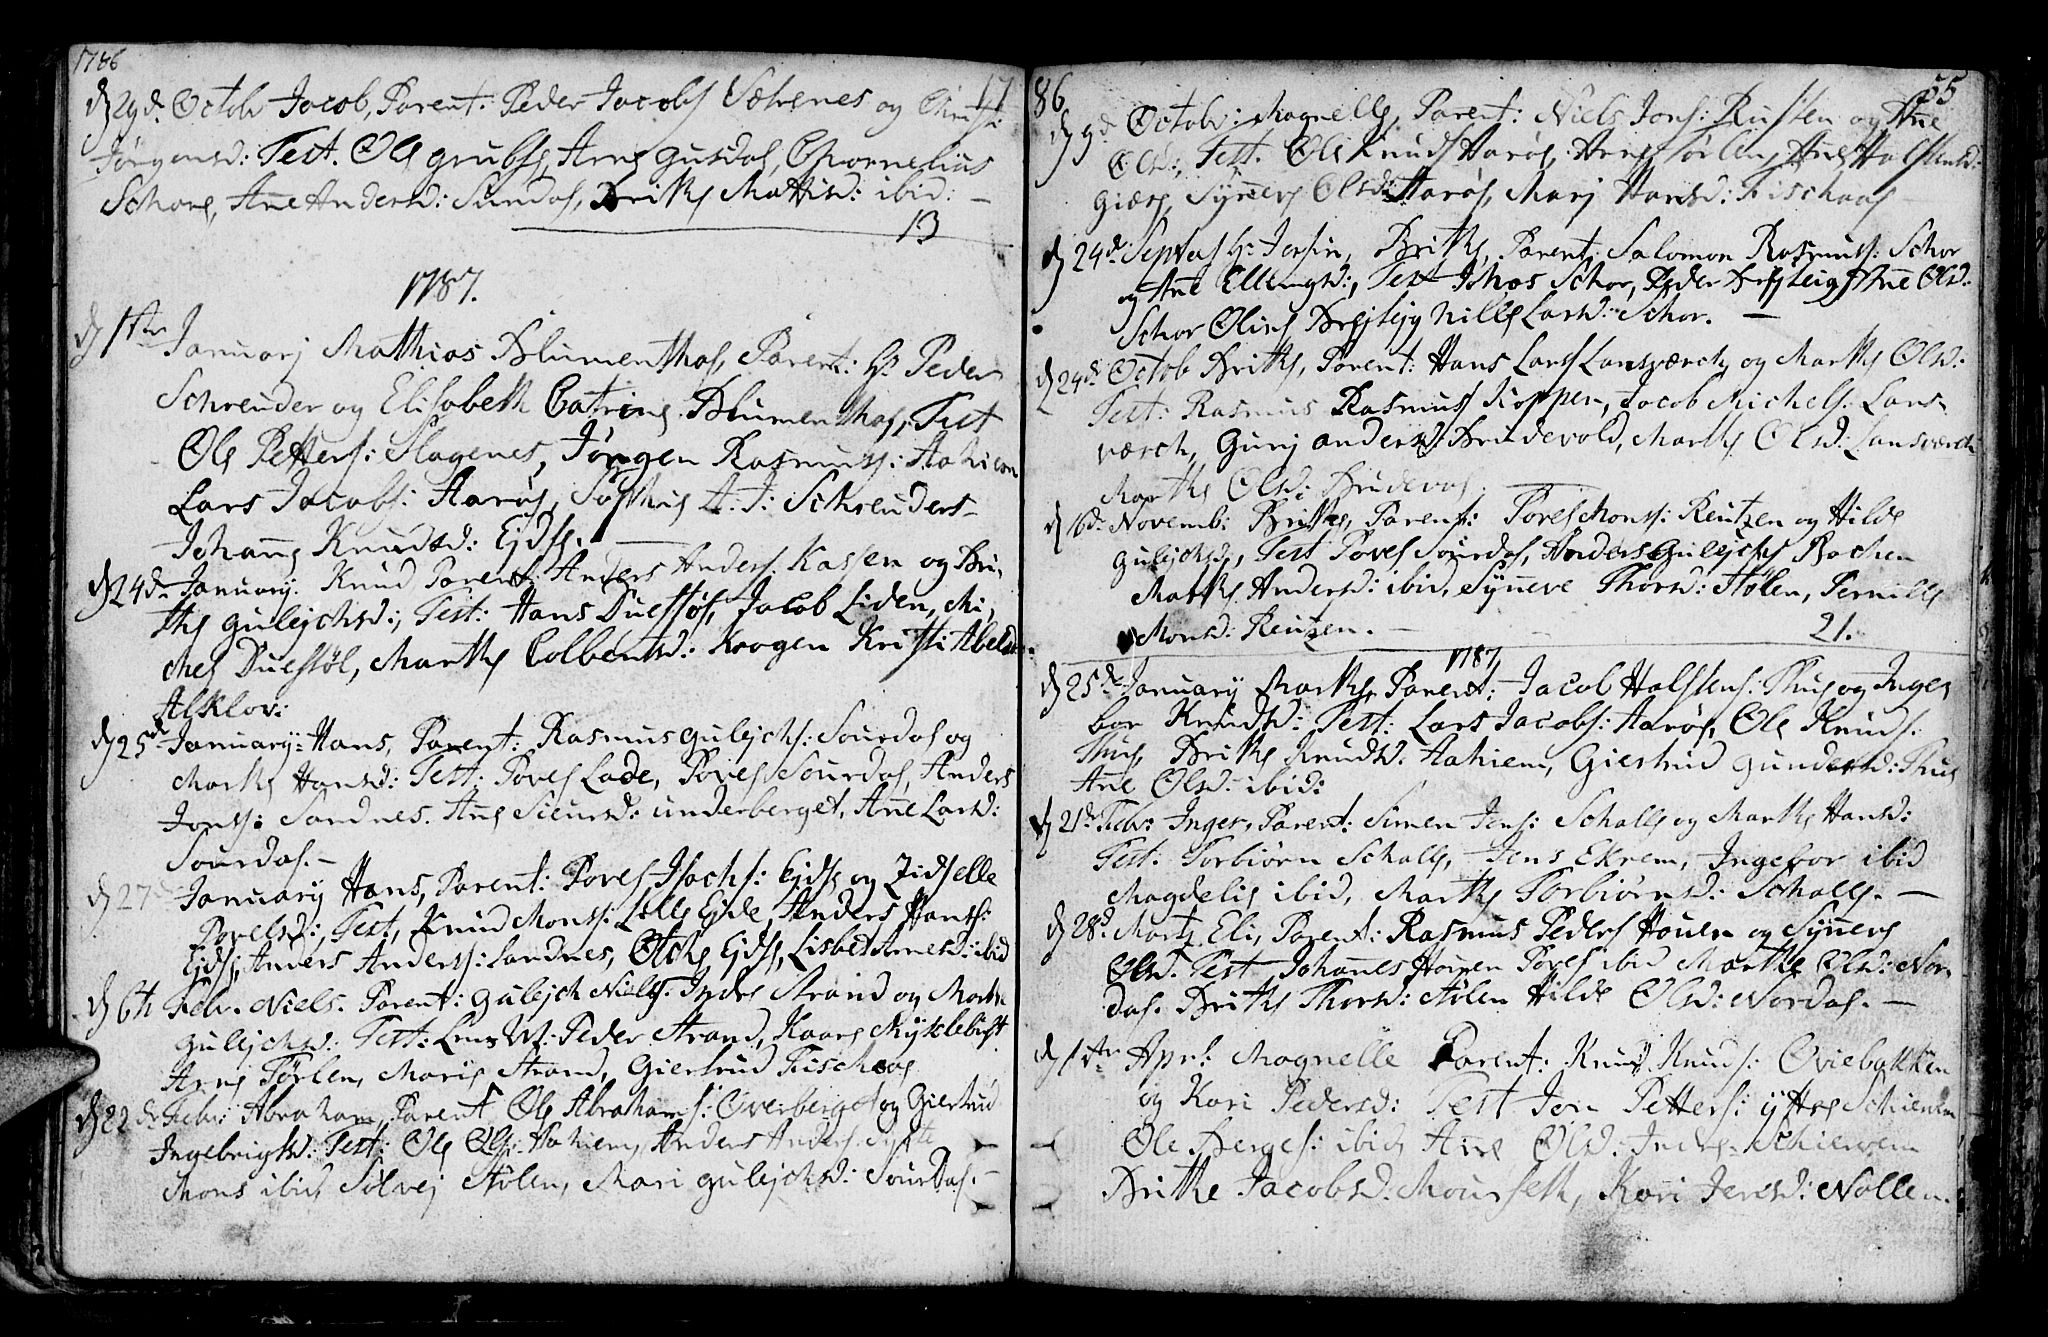 1786
17
d 29d. Octobr Jacob, Parent: Peder Jacobs Sætrenes og Christi
Jørgensd: Test. Ole Grubse, Arne Gusdal, Chornelius
Schore, Ane Andersd: Sundal, Brithe Mattisd: ibid: —
13
1787.
d 1ste Januarj Mathias Blumenthal, Parent: Hr Peder
Schreuder og Elisabeth Catrine Blumenthal, Test
Ole Petters: Slagenes, Jørgen Rasmuss: Aahiem
Lars Jacobs: Aarøe, Sophie A. J: Schreuders
Johanne Knudsd: Ejde. —
d 24d. January. Knud Parent: Anders Anders: Kassen og Bri,
the Gulejchsd:, Test: Hans Duestøl, Jacob Liden, Mi,
chel Duestøl, Marthe Colbentsd: Krogen Kristi Abelsd:
Alklov:
d 25d January: Hans, Parent: Rasmus Gulejchs: Sourdal og
Marthe Hansd: Test: Povel Lade, Povel Sourdal, Anders
Jonss: Sandnes. Ane Siursd: underberget, Ane Larsd:
Sourdal. —
d 27d January Hans, Parent: Povel Isachs: Ejde og Zidselle
Povelsd:, Test, Knud Monss: Lille Ejde, Anders Hanss:
Ejde, Anders Anderss: Sandnes, Ejde, Lisbet Arnesd: ibid
d 6te Febr. Niels. Parent: Gulejch Niels: Indre Strand og Marthe
Gulejchsd: Test: Peder Strand, Kaare Myklebust
Arne Tørlen, Marie Strand, Giertrud Fischaas
d 22d Febr: Abraham, Parent Ole Abrahams: Overberget og Giertrud
Ingebrigtsd: Test: Ole Ols: Aahiem, Anders Anders:
Mons ibid, Solvej Stølen, Mari Gulejchsd: Sourdal. —
86
55
d 9d Octobr: Magnelle, Parent: Niels Jons: Rusten og Ane
Olsd:, Test. Ole Knuds Aarøe, Arne Tørlen, Ane Halstensd:
Giære, Synneve Olsd: Aarøe, Marj Hansd: Fischaas —
d 24d: Brithe, Parent Salomon Rasmuss: Schor
og Ane Ellingsd:, Test Johas Schor, Peder Ane Olsd:
Schor Oline Nille Larsd: Schor. —
d 24d. Octob Brithe, Parent: Hans Lars Lansværch og Marthe Olsd:
Test: Rasmus Rasmuss Koppen, Jacob Michels: Lans
værch, Gurj Andersd: Brudevold, Marthe Olsd: Lansværch
Marthe Olsd: Brudevol. —
d 16d. Novemb: Brithe, Parent: Povel Monss: Reutzen og Hilde
Gulejchsd:, Test Povel Sourdal, Anders Gulejchs Bache
Marthe Andersd: ibid, Synneve Thorsd: Stølen, Pernille
Monsd: Reutzen. —
21.
1787
d 25d January Marthe Parent: Jacob Halstens: Thue og Inge,
bor Knudsd: Test: Lars Jacobs: Aarøe, Ole Knuds:
Thue, Brithe Knudsd. Aahiem, Giertrud Gundersd: Thue
Ane Olsd: ibid:
d 21d. Febr: Inger, Parent: Simen Jens: Schalle og Marthe Hansd:
Test. Torbiørn Schalle, Jens Ekrem, Ingebor ibid
Magdelie ibid, Marthe Torbiørnsd: Schalle. —
d 28d. Martz Eli, Parent: Rasmus Peders Houen og Synneve
Olsd. Test Johannes Houen Povel ibid Marthe Olsd: Nor,
dal. Brithe Thorsd: Stølen Hilde Olsd: Nordal. —
d 1ste Apr: Magnelle Parent: Knud Knuds: Oviebakken
og Kari Pedersd: Test Jon Petters: Ytre Schienhm
Ole Berges: ibid, Ane Olsd: Indre Schievem
Brithe Jacobsd: Mourseth, Kari Jensd: Nollen.